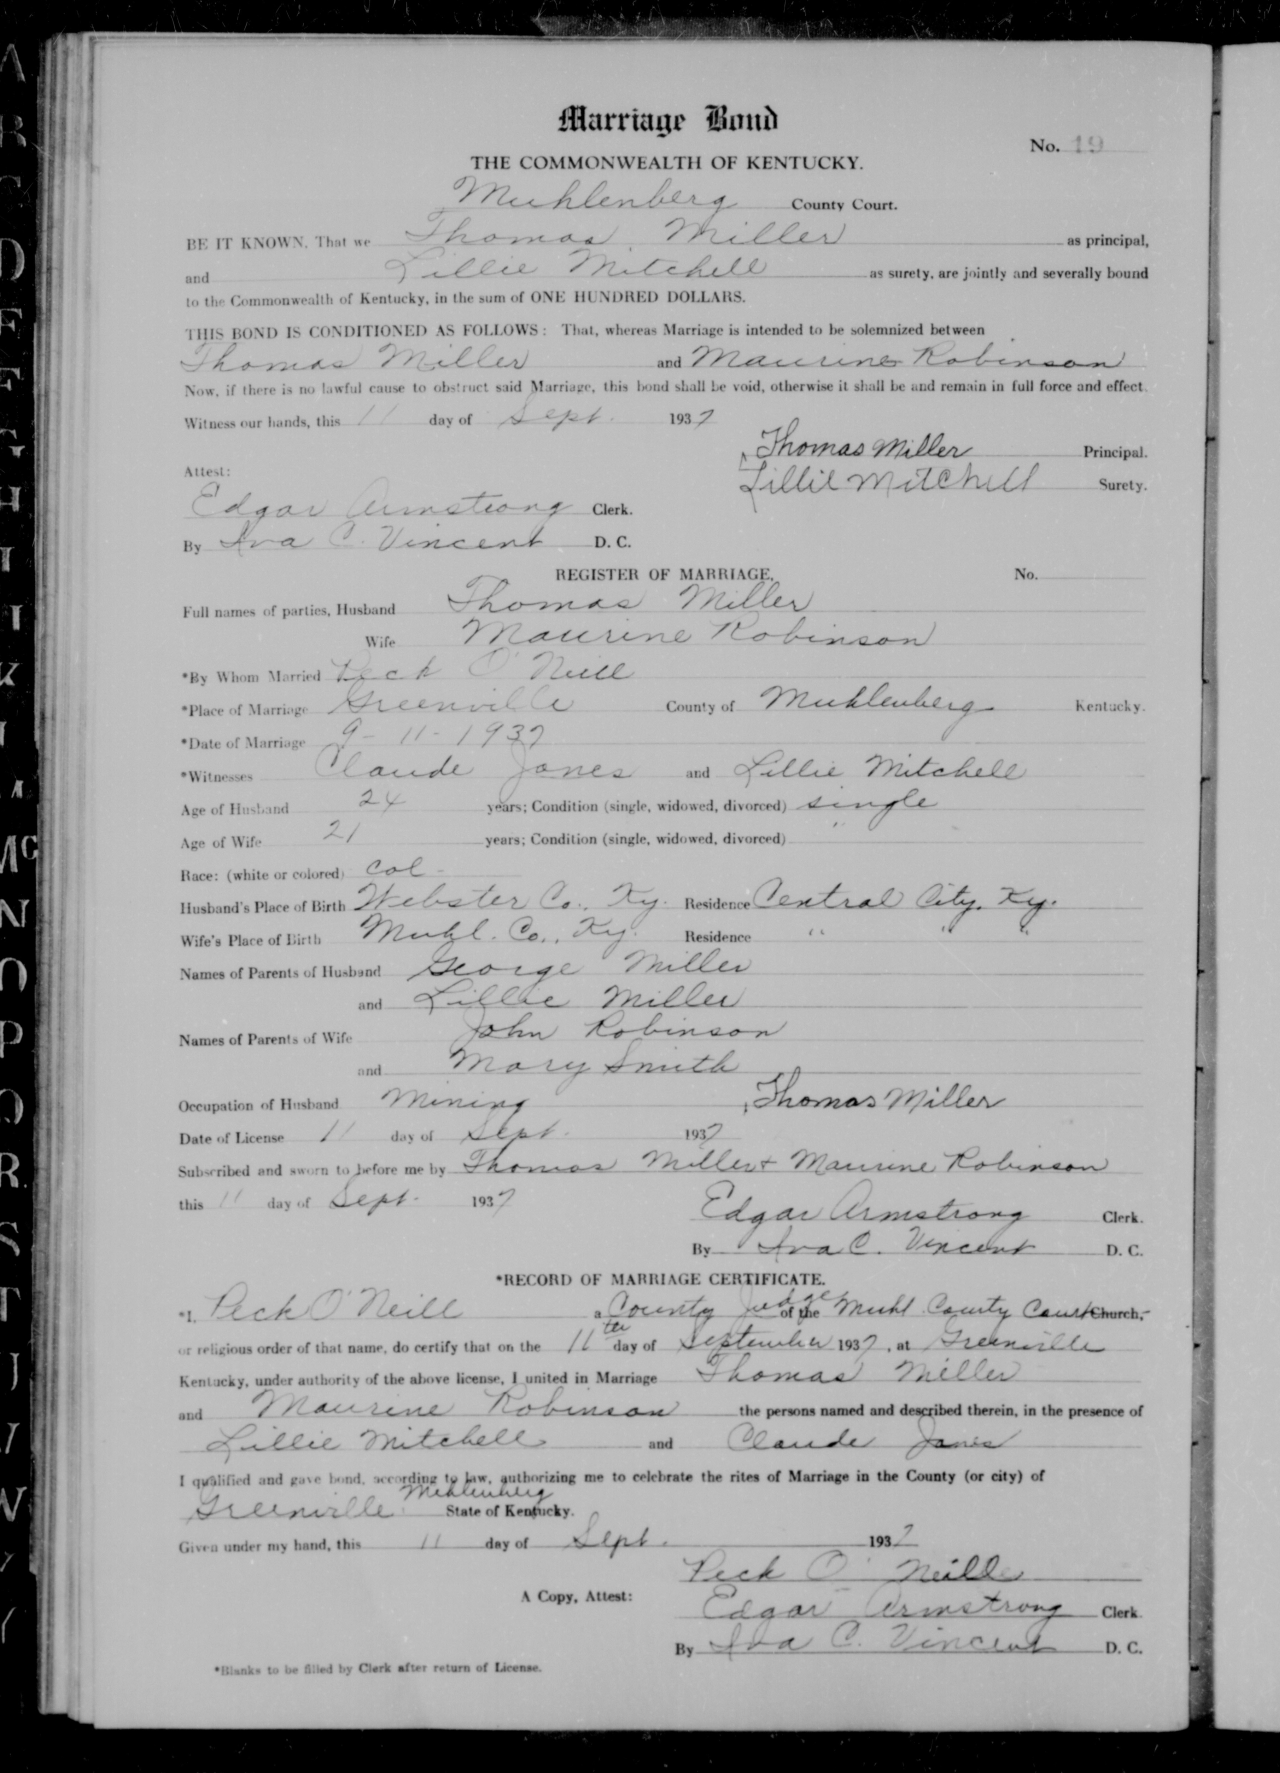 Marriage Bond
No. 19
THE COMMONWEALTH OF KENTUCKY.
Muhlenberg County Court.
BE IT KNOWN, That we Thomas Miller as principal,
and Lillie Mitchell as surety, are jointly and severally bound
to the Commonwealth of Kentucky, in the sum of ONE HUNDRED DOLLARS.
THIS BOND IS CONDITIONED AS FOLLOWS: That, whereas Marriage is intended to be solemnized between
Thomas Miller and Maurine Robinson
Now, if there is no lawful cause to obstruct said Marriage, this bond shall be void, otherwise it shall be and remain in full force and effect.
Witness our hands, this 11 day of Sept. 1937
Thomas Miller Principal.
Attest: Lillie Mitchell Surety.
Edgar Armstrong Clerk.
By Iva C. Vincent D. C.
REGISTER OF MARRIAGE, No.
Full names of parties, Husband Thomas Miller
Wife Maurine Robinson
*By Whom Married Peck O'Neill
*Place of Marriage Greenville County of Muhlenberg Kentucky.
*Date of Marriage 9-11-1937
*Witnesses Claude Jones and Lillie Mitchell
Age of Husband 24 years; Condition (single, widowed, divorced) single
Age of Wife 21 years; Condition (single, widowed, divorced) "
Race: (white or colored) Col.
Husband's Place of Birth Webster Co., Ky. Residence Central City, Ky.
Wife's Place of Birth Muhl. Co., Ky. Residence " " "
Names of Parents of Husband George Miller
and Lillie Miller
Names of Parents of Wife John Robinson
and Mary Smith
Occupation of Husband Mining Thomas Miller
Date of License 11 day of Sept. 1937
Subscribed and sworn to before me by Thomas Miller + Maurine Robinson
this 11 day of Sept. 1937
Edgar Armstrong Clerk.
By Iva C. Vincent D. C.
*RECORD OF MARRIAGE CERTIFICATE.
*I, Peck O'Neill a County Judge of the Muhl County Court Church,
or religious order of that name, do certify that on the 11th day of September 1937, at Greenville
Kentucky, under authority of the above license, I united in Marriage Thomas Miller
and Maurine Robinson the persons named and described therein, in the presence of
Lillie Mitchell and Claude Jones
I qualified and gave bond, according to law, authorizing me to celebrate the rites of Marriage in the County (or city) of
Greenville Muhlenberg State of Kentucky.
Given under my hand, this 11 day of Sept. 1937
Peck O'Neille
A Copy, Attest: Edgar Armstrong Clerk.
By Iva C. Vincent D. C.
*Blanks to be filled by Clerk after return of License.